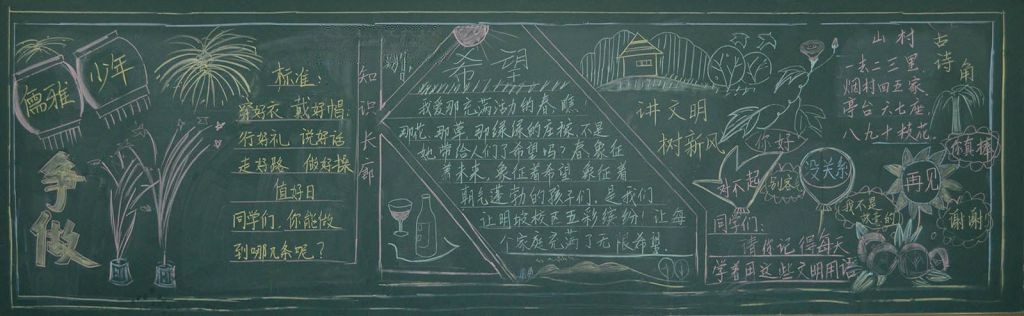 儒雅
少年
争做
标准：
穿好衣 戴好帽.
行好礼 说好话
走好路 做好操
值好日
同学们,你能做
到哪几条呢？
知识长廊
希望
我爱那充满活力的春,瞧！
那花,那草,那绿绿的庄稼,不是
她带给人们了希望吗？春,象征
着未来,象征着希望,象征着
朝气蓬勃的孩子们,是我们
让明坡校区五彩缤纷！让每
个家庭充满了无限希望.
讲文明
树新风
古诗角
山村
一去二三里
烟村四五家
亭台六七座
八九十枝花.
你好
对不起
别客气
没关系
我不是故意的
再见
你真棒
谢谢
同学们:
请你记得每天
学着用这些文明用语